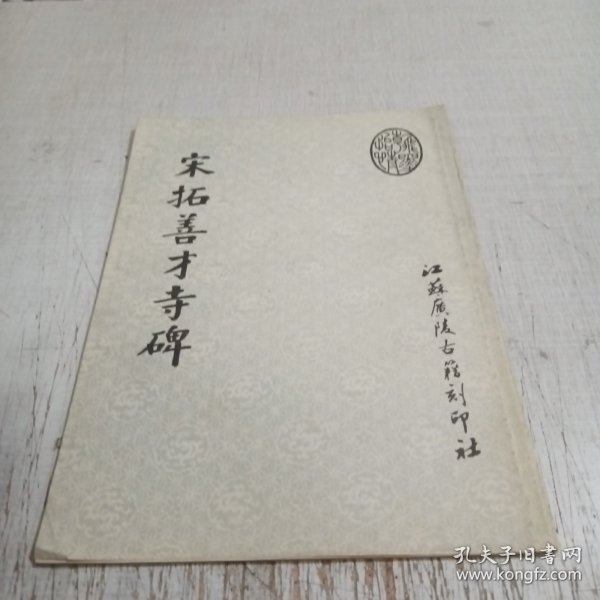 宋拓善才寺碑
江蘇廣陵古籍刻印社
孔夫子旧书网
www.kongfz.com